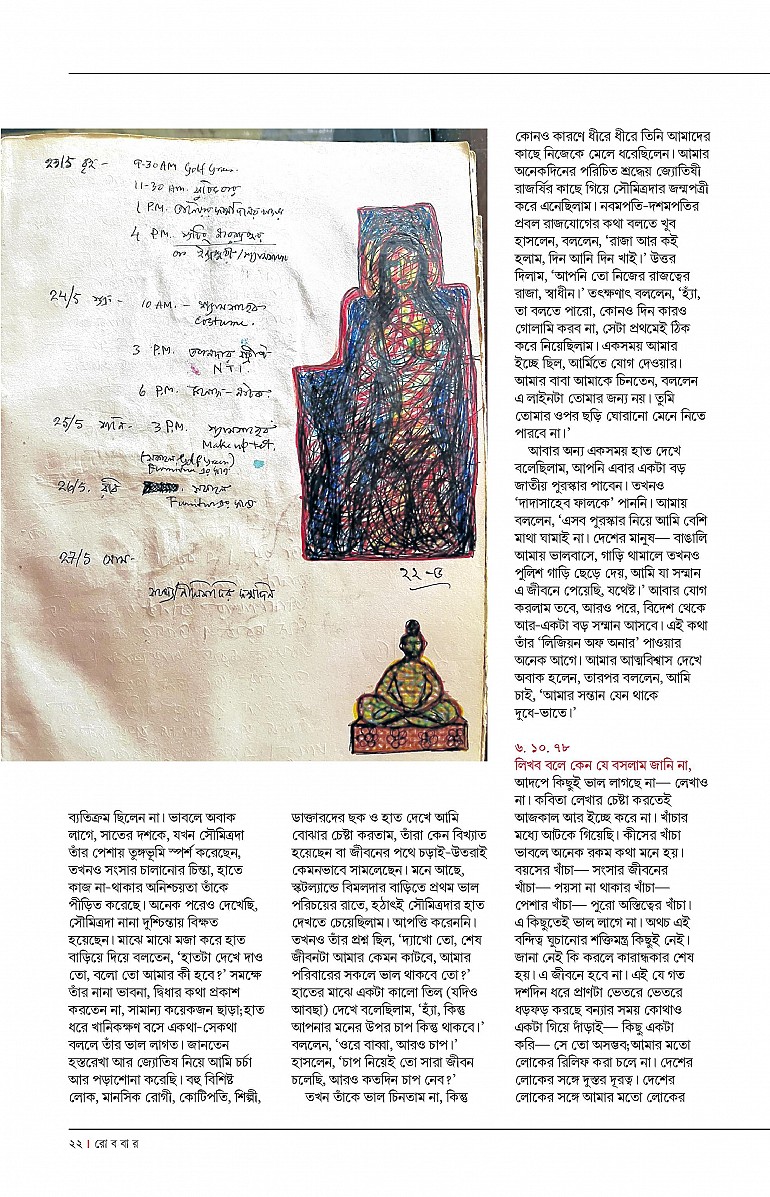 23/5 বৃহ - 9-30 AM Golf Green.
11-30 AM.
1 P.M.
4 P.M.
24/5 শুক্র - 10 AM. -
Costume.
3 P.M.
NT1.
6 P.M.
25/5 শনি - 3 P.M.
Make up test.
26/5. রবি
27/5 সোম-
২২-৫
ব্যতিক্রম ছিলেন না। ভাবলে অবাক
লাগে, সাতের দশকে, যখন সৌমিত্রদা
তাঁর পেশায় তুঙ্গভূমি স্পর্শ করেছেন,
তখনও সংসার চালানোর চিন্তা, হাতে
কাজ না-থাকার অনিশ্চয়তা তাঁকে
পীড়িত করেছে। অনেক পরেও দেখেছি,
সৌমিত্রদা নানা দুশ্চিন্তায় বিক্ষত
হয়েছেন। মাঝে মাঝে মজা করে হাত
বাড়িয়ে দিয়ে বলতেন, ‘হাতটা দেখে দাও
তো, বলো তো আমার কী হবে?’ সমক্ষে
তাঁর নানা ভাবনা, দ্বিধার কথা প্রকাশ
করতেন না, সামান্য কয়েকজন ছাড়া;হাত
ধরে খানিকক্ষণ বসে একথা-সেকথা
বললে তাঁর ভাল লাগত। জানতেন
হস্তরেখা আর জ্যোতিষ নিয়ে আমি চর্চা
আর পড়াশোনা করেছি। বহু বিশিষ্ট
লোক, মানসিক রোগী, কোটিপতি, শিল্পী,
ডাক্তারদের ছক ও হাত দেখে আমি
বোঝার চেষ্টা করতাম, তাঁরা কেন বিখ্যাত
হয়েছেন বা জীবনের পথে চড়াই-উতরাই
কেমনভাবে সামলেছেন। মনে আছে,
স্কটল্যান্ডে বিমলদার বাড়িতে প্রথম ভাল
পরিচয়ের রাতে, হঠাৎই সৌমিত্রদার হাত
দেখতে চেয়েছিলাম। আপত্তি করেননি।
তখনও তাঁর প্রশ্ন ছিল, ‘দ্যাখো তো, শেষ
জীবনটা আমার কেমন কাটবে, আমার
পরিবারের সকলে ভাল থাকবে তো?’
হাতের মাঝে একটা কালো তিল (যদিও
আবছা) দেখে বলেছিলাম, ‘হ্যাঁ, কিন্তু
আপনার মনের উপর চাপ কিন্তু থাকবে।’
বললেন, ‘ওরে বাব্বা, আরও চাপ।’
হাসলেন, ‘চাপ নিয়েই তো সারা জীবন
চলেছি, আরও কতদিন চাপ নেব?’
তখন তাঁকে ভাল চিনতাম না, কিন্তু
কোনও কারণে ধীরে ধীরে তিনি আমাদের
কাছে নিজেকে মেলে ধরেছিলেন। আমার
অনেকদিনের পরিচিত শ্রদ্ধেয় জ্যোতিষী
রাজর্ষির কাছে গিয়ে সৌমিত্রদার জন্মপত্রী
করে এনেছিলাম। নবমপতি-দশমপতির
প্রবল রাজযোগের কথা বলতে খুব
হাসলেন, বললেন, ‘রাজা আর কই
হলাম, দিন আনি দিন খাই।’ উত্তর
দিলাম, ‘আপনি তো নিজের রাজত্বের
রাজা, স্বাধীন।’ তৎক্ষণাৎ বললেন, ‘হ্যাঁ,
তা বলতে পারো, কোনও দিন কারও
গোলামি করব না, সেটা প্রথমেই ঠিক
করে নিয়েছিলাম। একসময় আমার
ইচ্ছে ছিল, আর্মিতে যোগ দেওয়ার।
আমার বাবা আমাকে চিনতেন, বললেন
এ লাইনটা তোমার জন্য নয়। তুমি
তোমার ওপর ছড়ি ঘোরানো মেনে নিতে
পারবে না।’
আবার অন্য একসময় হাত দেখে
বলেছিলাম, আপনি এবার একটা বড়
জাতীয় পুরস্কার পাবেন। তখনও
‘দাদাসাহেব ফালকে’ পাননি। আমায়
বললেন, ‘এসব পুরস্কার নিয়ে আমি বেশি
মাথা ঘামাই না। দেশের মানুষ— বাঙালি
আমায় ভালবাসে, গাড়ি থামালে তখনও
পুলিশ গাড়ি ছেড়ে দেয়, আমি যা সম্মান
এ জীবনে পেয়েছি, যথেষ্ট।’ আবার যোগ
করলাম তবে, আরও পরে, বিদেশ থেকে
আর-একটা বড় সম্মান আসবে। এই কথা
তাঁর ‘লিজিয়ন অফ অনার’ পাওয়ার
অনেক আগে। আমার আত্মবিশ্বাস দেখে
অবাক হলেন, তারপর বললেন, আমি
চাই, ‘আমার সন্তান যেন থাকে
দুধে-ভাতে।’
৬. ১০. ৭৮
লিখব বলে কেন যে বসলাম জানি না,
আদপে কিছুই ভাল লাগছে না— লেখাও
না। কবিতা লেখার চেষ্টা করতেই
আজকাল আর ইচ্ছে করে না। খাঁচার
মধ্যে আটকে গিয়েছি। কীসের খাঁচা
ভাবলে অনেক রকম কথা মনে হয়।
বয়সের খাঁচা— সংসার জীবনের
খাঁচা— পয়সা না থাকার খাঁচা—
পেশার খাঁচা— পুরো অস্তিত্বের খাঁচা।
এ কিছুতেই ভাল লাগে না। অথচ এই
বন্দিত্ব ঘুচানোর শক্তিমন্ত্র কিছুই নেই।
জানা নেই কি করলে কারান্ধকার শেষ
হয়। এ জীবনে হবে না। এই যে গত
দশদিন ধরে প্রাণটা ভেতরে ভেতরে
ধড়ফড় করছে বন্যার সময় কোথাও
একটা গিয়ে দাঁড়াই— কিছু একটা
করি— সে তো অসম্ভব;আমার মতো
লোকের রিলিফ করা চলে না। দেশের
লোকের সঙ্গে দুস্তর দূরত্ব। দেশের
লোকের সঙ্গে আমার মতো লোকের
২২ | রো ব বা র